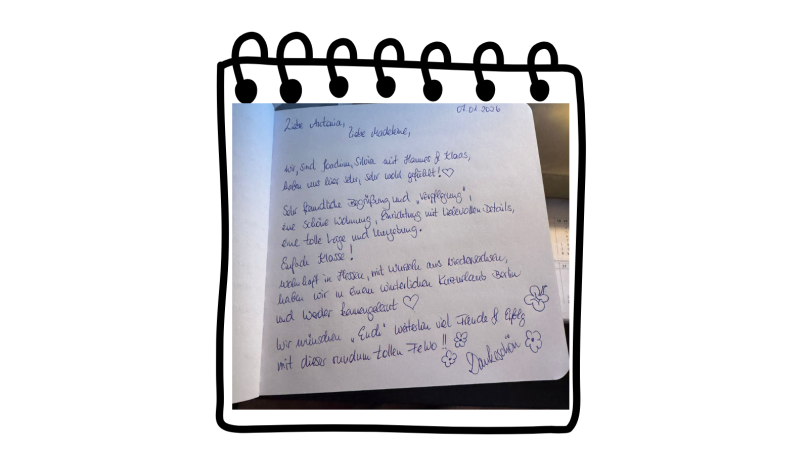 07.01.2026
Liebe Antonia,
Liebe Madeleine,
wir, sind Joachim, Silvia mit Hannes & Klaas,
haben uns hier sehr, sehr wohl gefühlt! ♡
Sehr freundliche Begrüßung und „Verpflegung",
eine schöne Wohnung, Einrichtung mit liebevollen Details,
eine tolle Lage und Umgebung.
Einfach Klasse!
Wohnhaft in Hessen, mit Wurzeln aus Niedersachsen,
haben wir in einem winterlichen Kurzurlaub Berlin
und Werder kennengelernt ♡
Wir wünschen „Euch" weiterhin viel Freude & Erfolg
mit dieser rundum tollen FeWo!!
Dankeschön